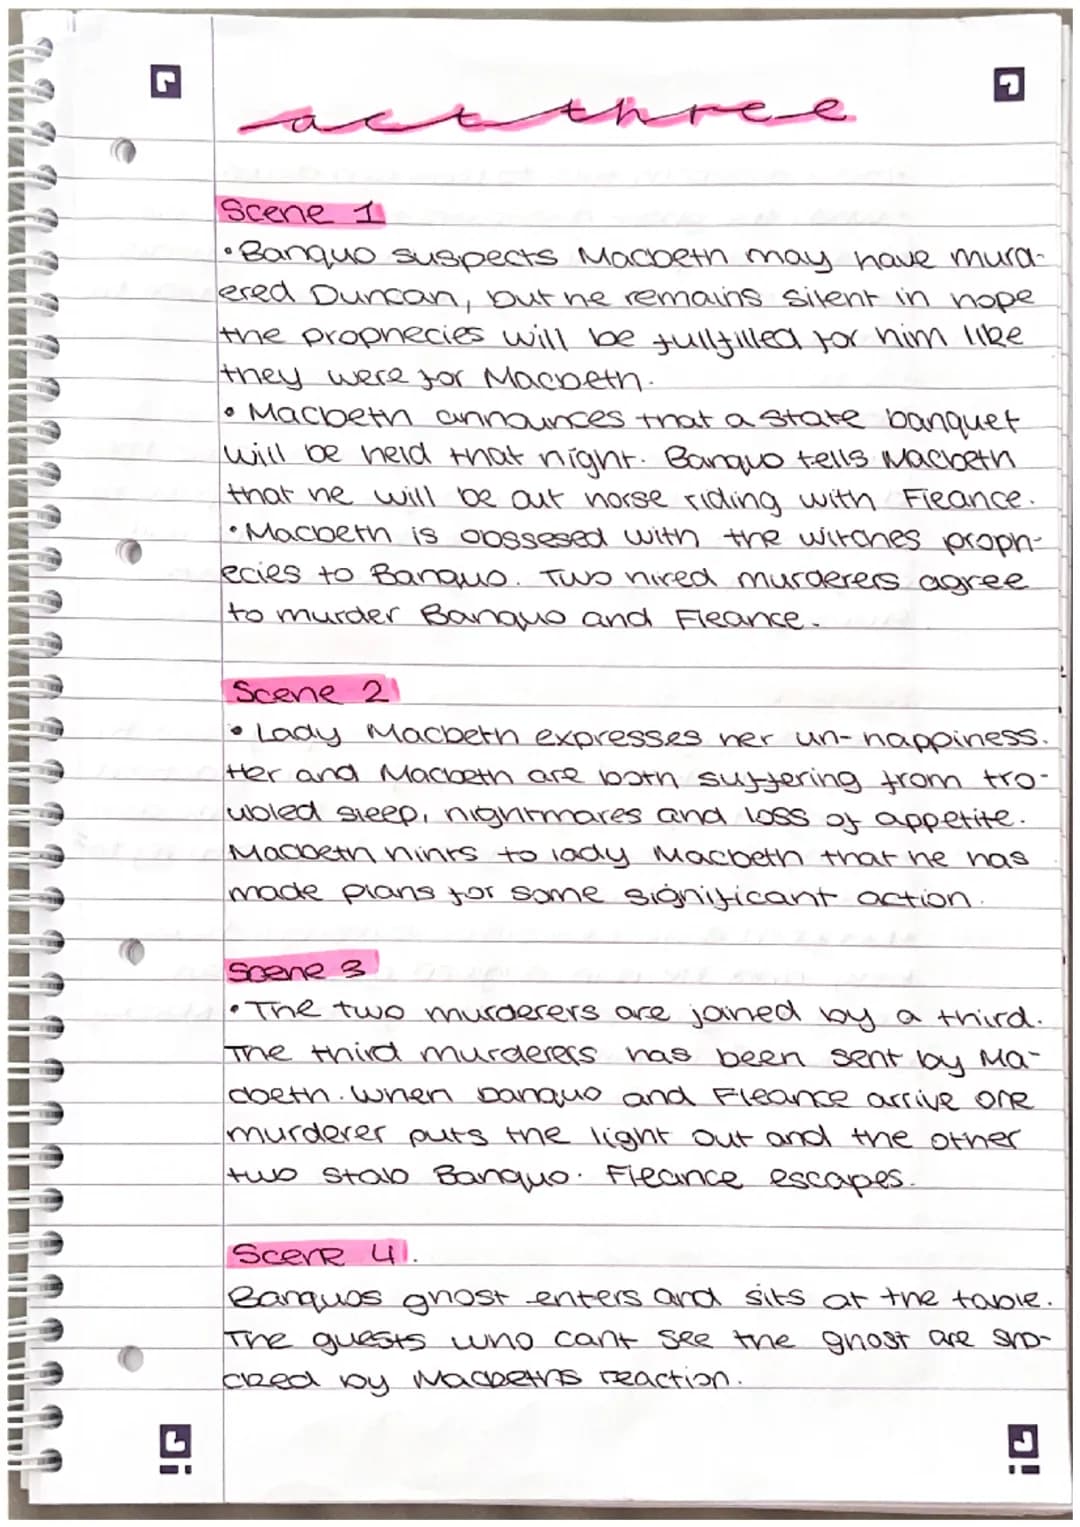 act three
Scene 1
• Banquo suspects Macbeth may have murd-
ered Duncan, but he remains silent in hope
the prophecies will be fullfilled for him like
they were for Macbeth.
• Macbeth announces that a state banquet
will be held that night. Banquo tells Macbeth
that he will be out horse riding with Fleance.
• Macbeth is obssesed with the witches proph-
ecies to Banquo. Two hired murderers agree
to murder Banquo and Fleance.
Scene 2
• Lady Macbeth expresses her un-happiness.
Her and Macbeth are both suffering from tro-
ubled sleep, nightmares and loss of appetite.
Macbeth hints to lady Macbeth that he has
made plans for some significant action.
Scene 3
• The two murderers are joined by a third.
The third murderers has been sent by Ma-
cbeth. When Banquo and Fleance arrive one
murderer puts the light out and the other
two stab Banquo. Fleance escapes.
Scene 4.
Banquos ghost enters and sits at the table.
The guests who cant see the ghost are sho-
cked by Macbeths reaction.